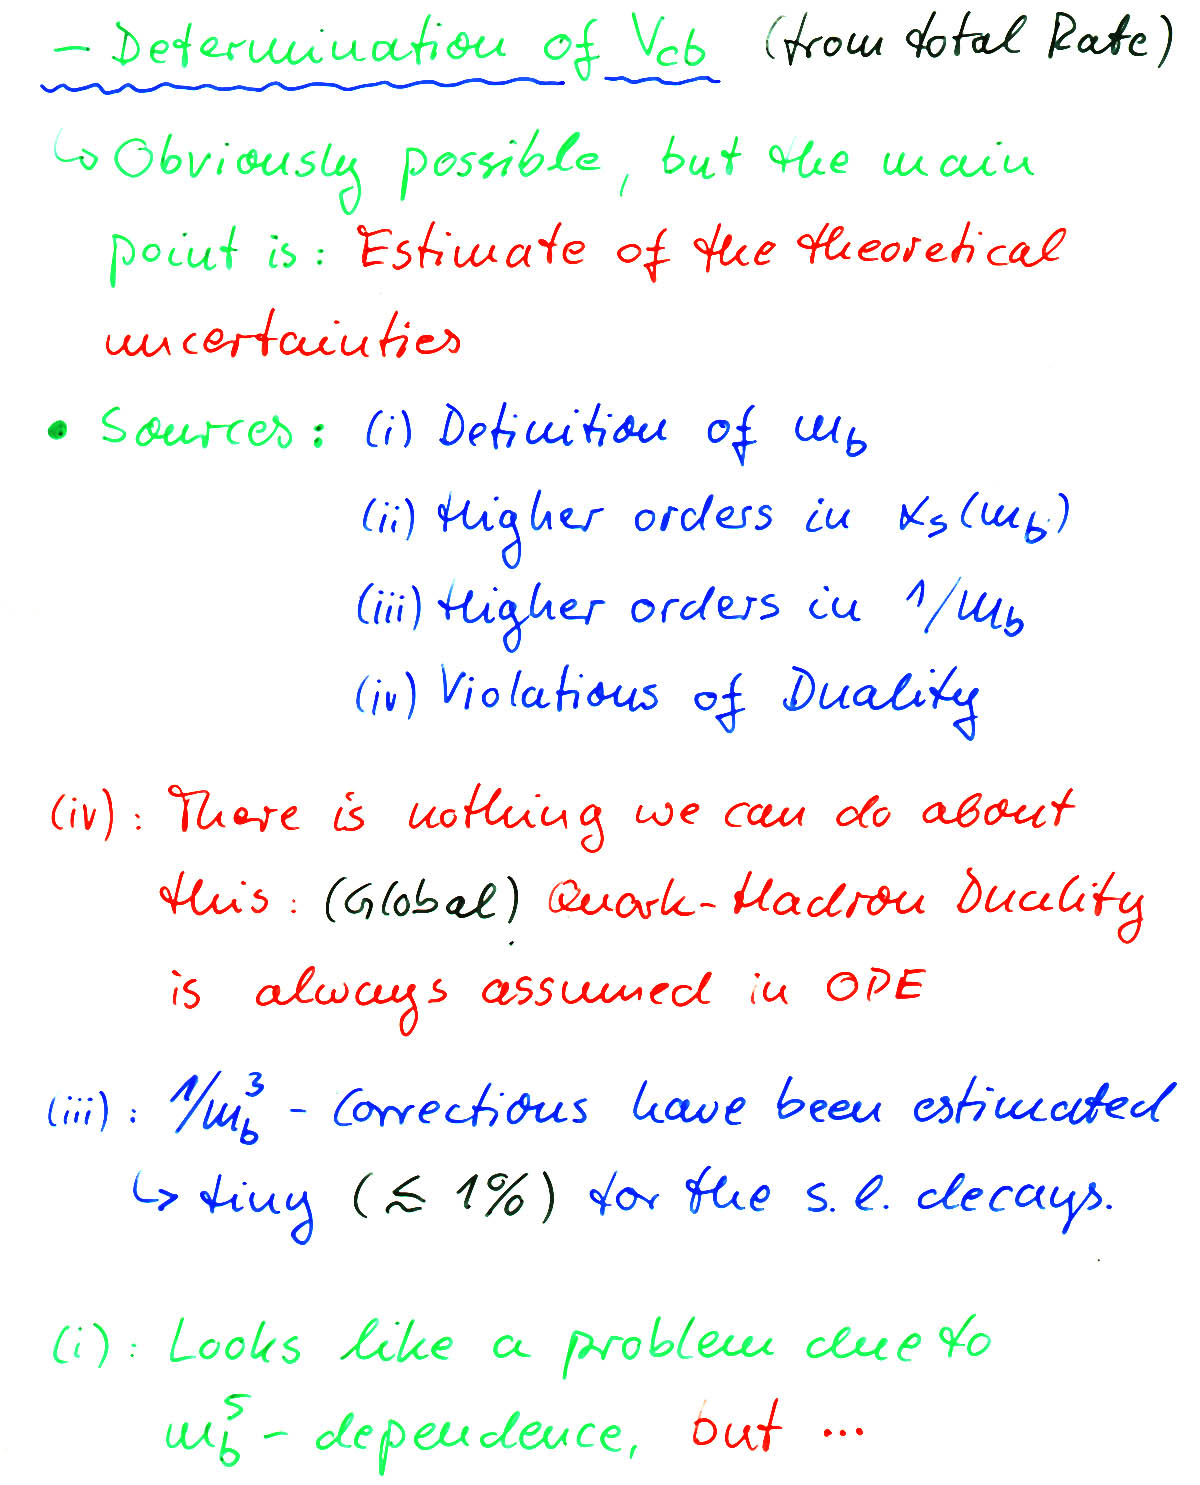 - Determination of Vcb (from total Rate)
↳ Obviously possible, but the main
point is: Estimate of the theoretical
uncertainties
• Sources: (i) Definition of m_b
(ii) Higher orders in α_s(m_b)
(iii) Higher orders in 1/m_b
(iv) Violations of Duality
(iv): There is nothing we can do about
this: (Global) Quark-Hadron Duality
is always assumed in OPE
(iii): 1/m_b^3 - Corrections have been estimated
↳ tiny (≲ 1%) for the s.l. decays.
(i): Looks like a problem due to
m_b^5 - dependence, but ...